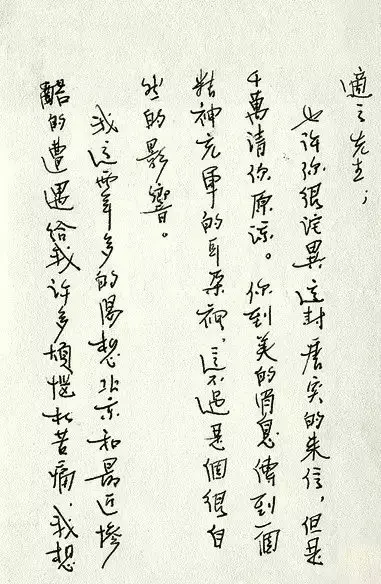 適之先生；
也許你很詫異這封唐突的来信，但是
千萬請你原諒。你到美的消息傳到一個
精神充軍的耳朵裡，這不過是個很自
然的影響。
我這兩年多的渴想北京和最近慘
酷的遭遇給我許多煩惱和苦痛，我想